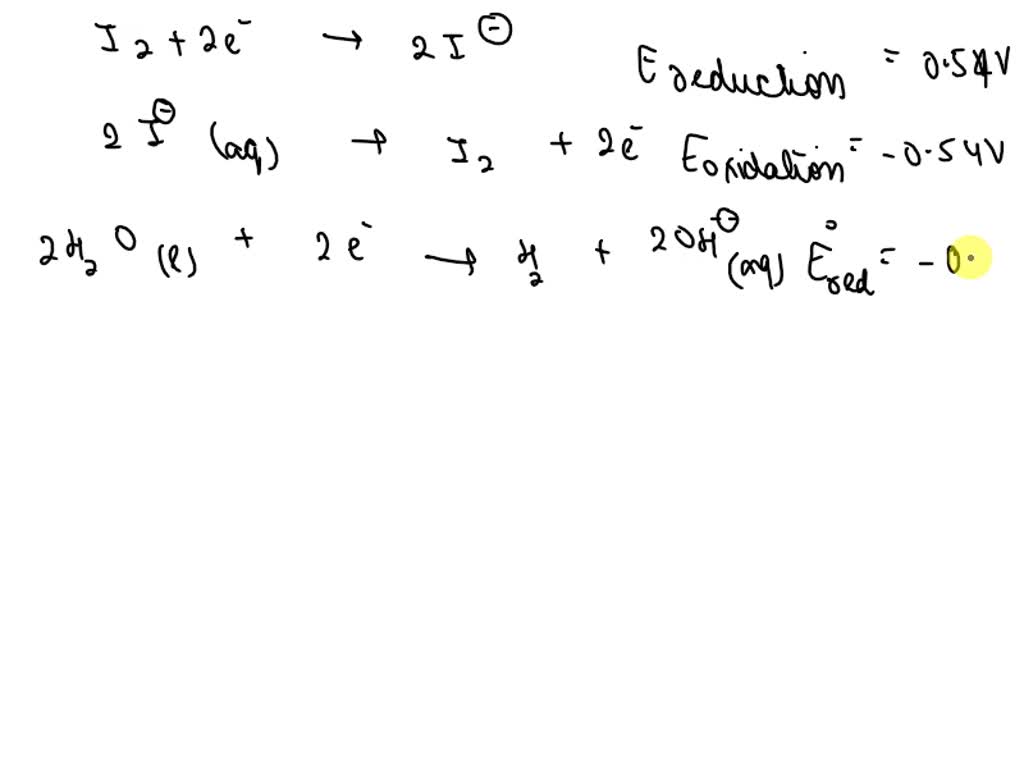 I₂ + 2e⁻ → 2I⊖ E reduction = 0.54V
2I⊖ (aq) → I₂ + 2e⁻ E oxidation = -0.54V
2H₂O (l) + 2e⁻ → H₂ + 2OH⊖ (aq) E°red = -0.